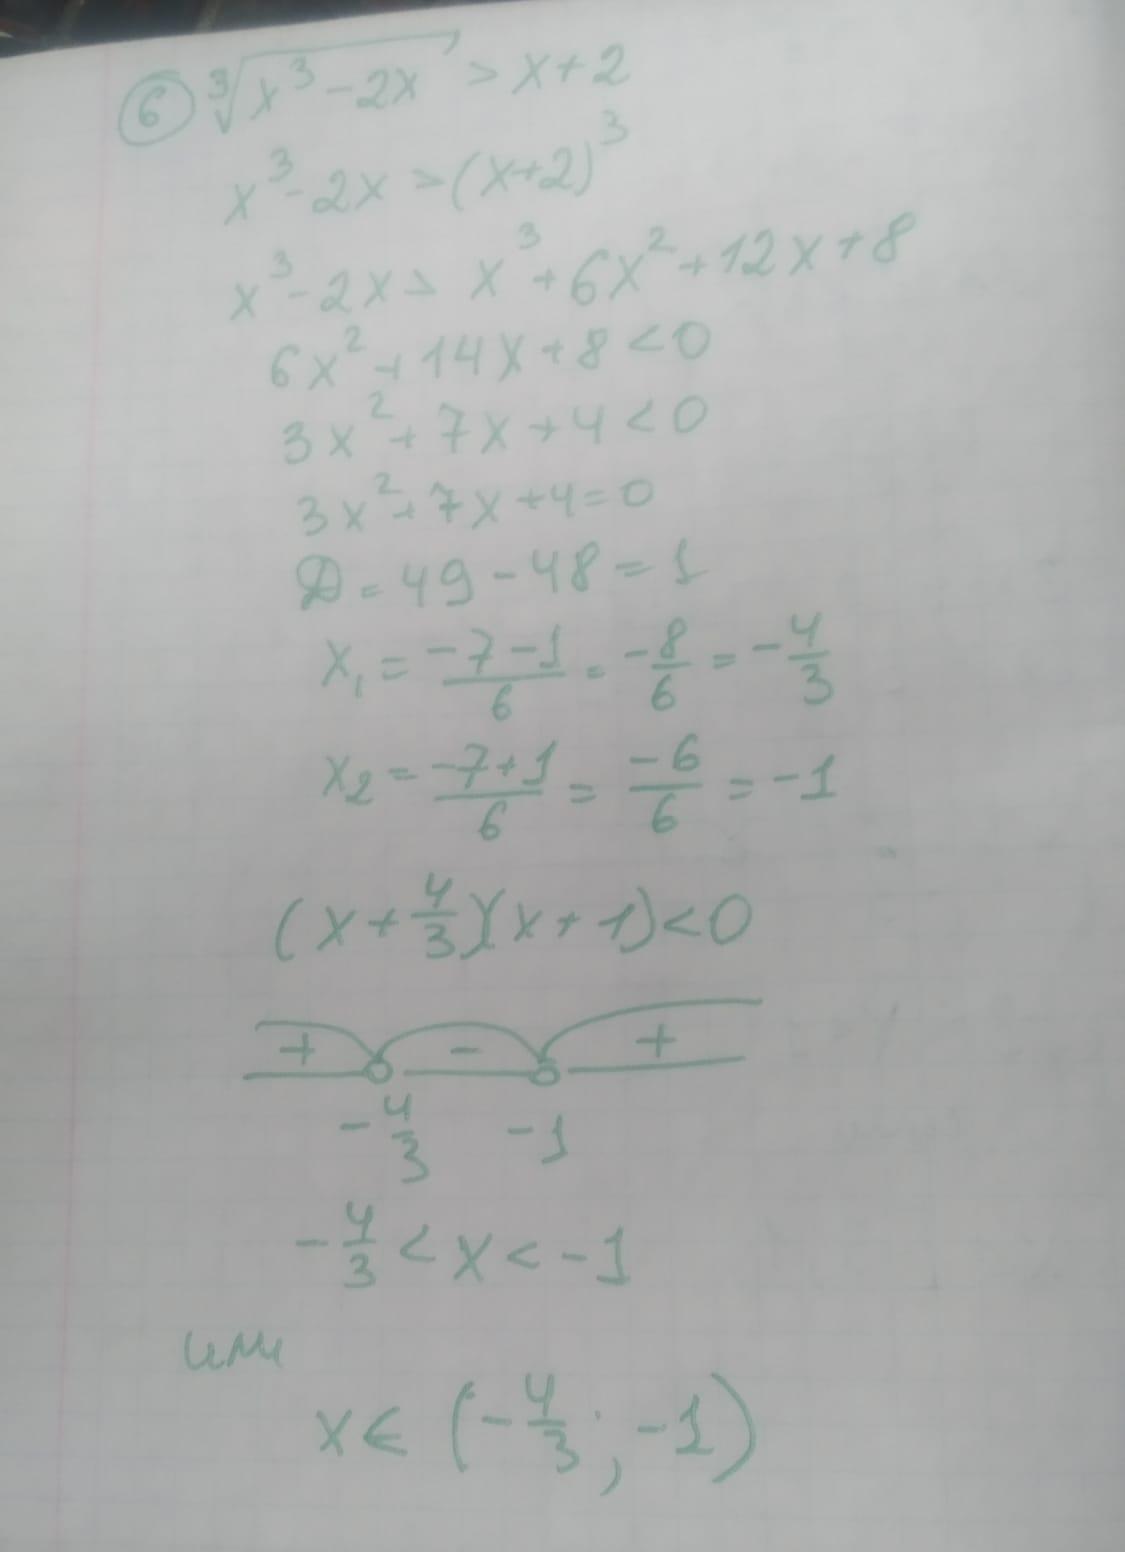 ⑥ ∛(x³-2x) > x+2
x³-2x > (x+2)³
x³-2x > x³+6x²+12x+8
6x²+14x+8<0
3x²+7x+4<0
3x²+7x+4=0
Д=49-48=1
x₁ = (-7-1)/6 = -8/6 = -4/3
x₂ = (-7+1)/6 = -6/6 = -1
(x+4/3)(x+1)<0
+ - +
-4/3 -1
-4/3 < x < -1
или
x∈(-4/3; -1)